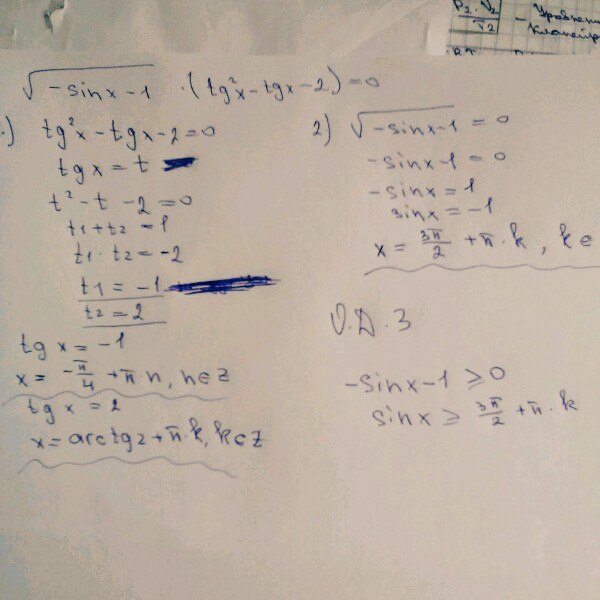 P₂ · V₂ / T₂ - Уравнен
Клапейр
√(-sinx-1) · (tg²x-tgx-2)=0
1) tg²x-tgx-2=0
tgx=t
t²-t-2=0
t₁+t₂=1
t₁·t₂=-2
t₁=-1
t₂=2
tgx=-1
x=-π/4+πn, n∈z
tgx=2
x=arctg2+π·k, k∈z
2) √(-sinx-1)=0
-sinx-1=0
-sinx=1
sinx=-1
x=3π/2+π·k, k∈
О.Д.З
-sinx-1≥0
sinx≥3π/2+π·k